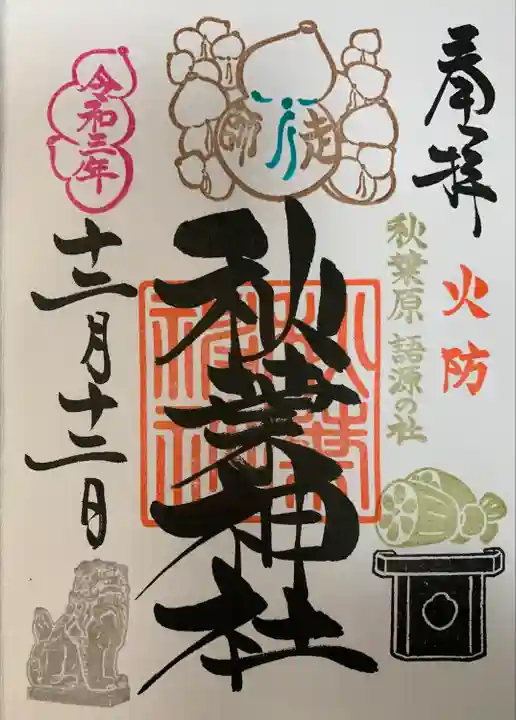 奉拝
火防
秋葉原 語源の社
師走
秋葉神社
秋葉
神社
令和三年
十二月十二日